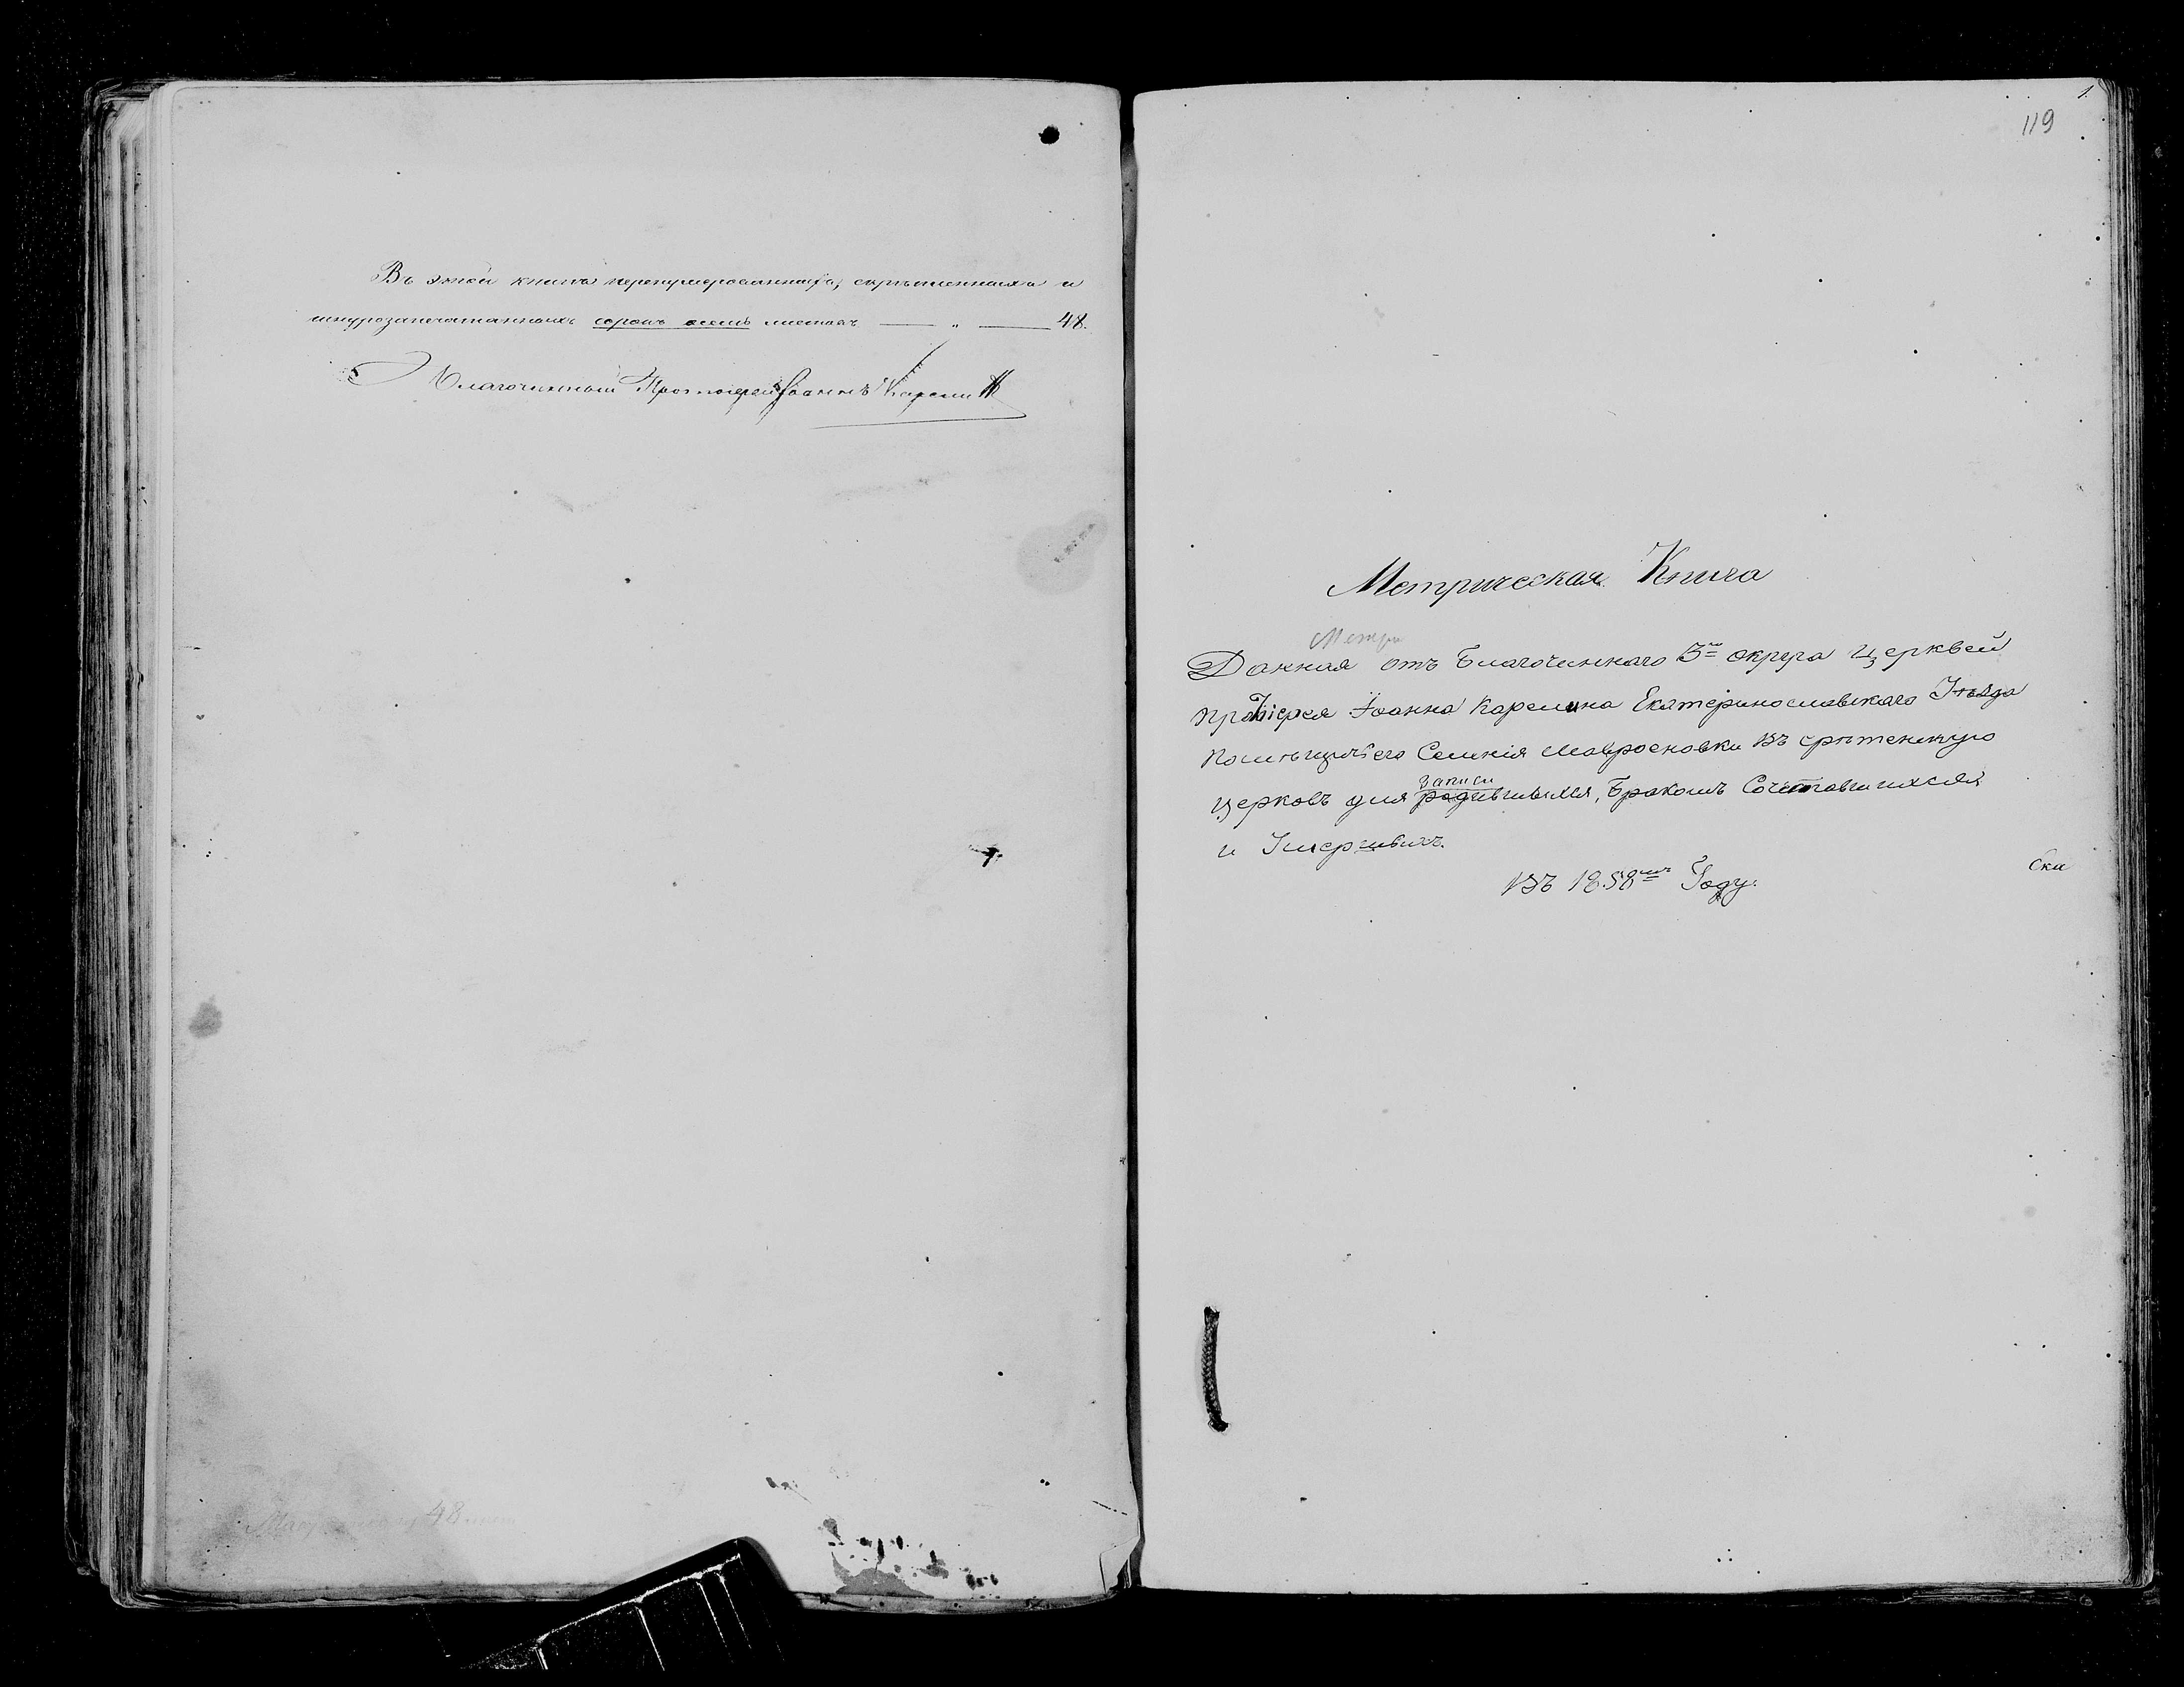 Въ этой книгѣ перенумерованныхъ, скрѣпленныхъ и
шнурозапечатанныхъ сорокъ осемь листовъ — „ — 48.
Благочинный Протоіерей Іоаннъ Карелин
48
1.
119
Метрическая Книга
Метри
Данная отъ Благочиннаго 3го округа Церквей
Протіерея Іоанна Карелина Екатеринославскаго Уѣзда
Помѣщичьего Селенія Мавроеновки въ срѣтенскую
записи
Церковъ для родившихся, Бракомъ Сочетавшихся
и Умершихъ.
Въ 1858мъ Году.
ска